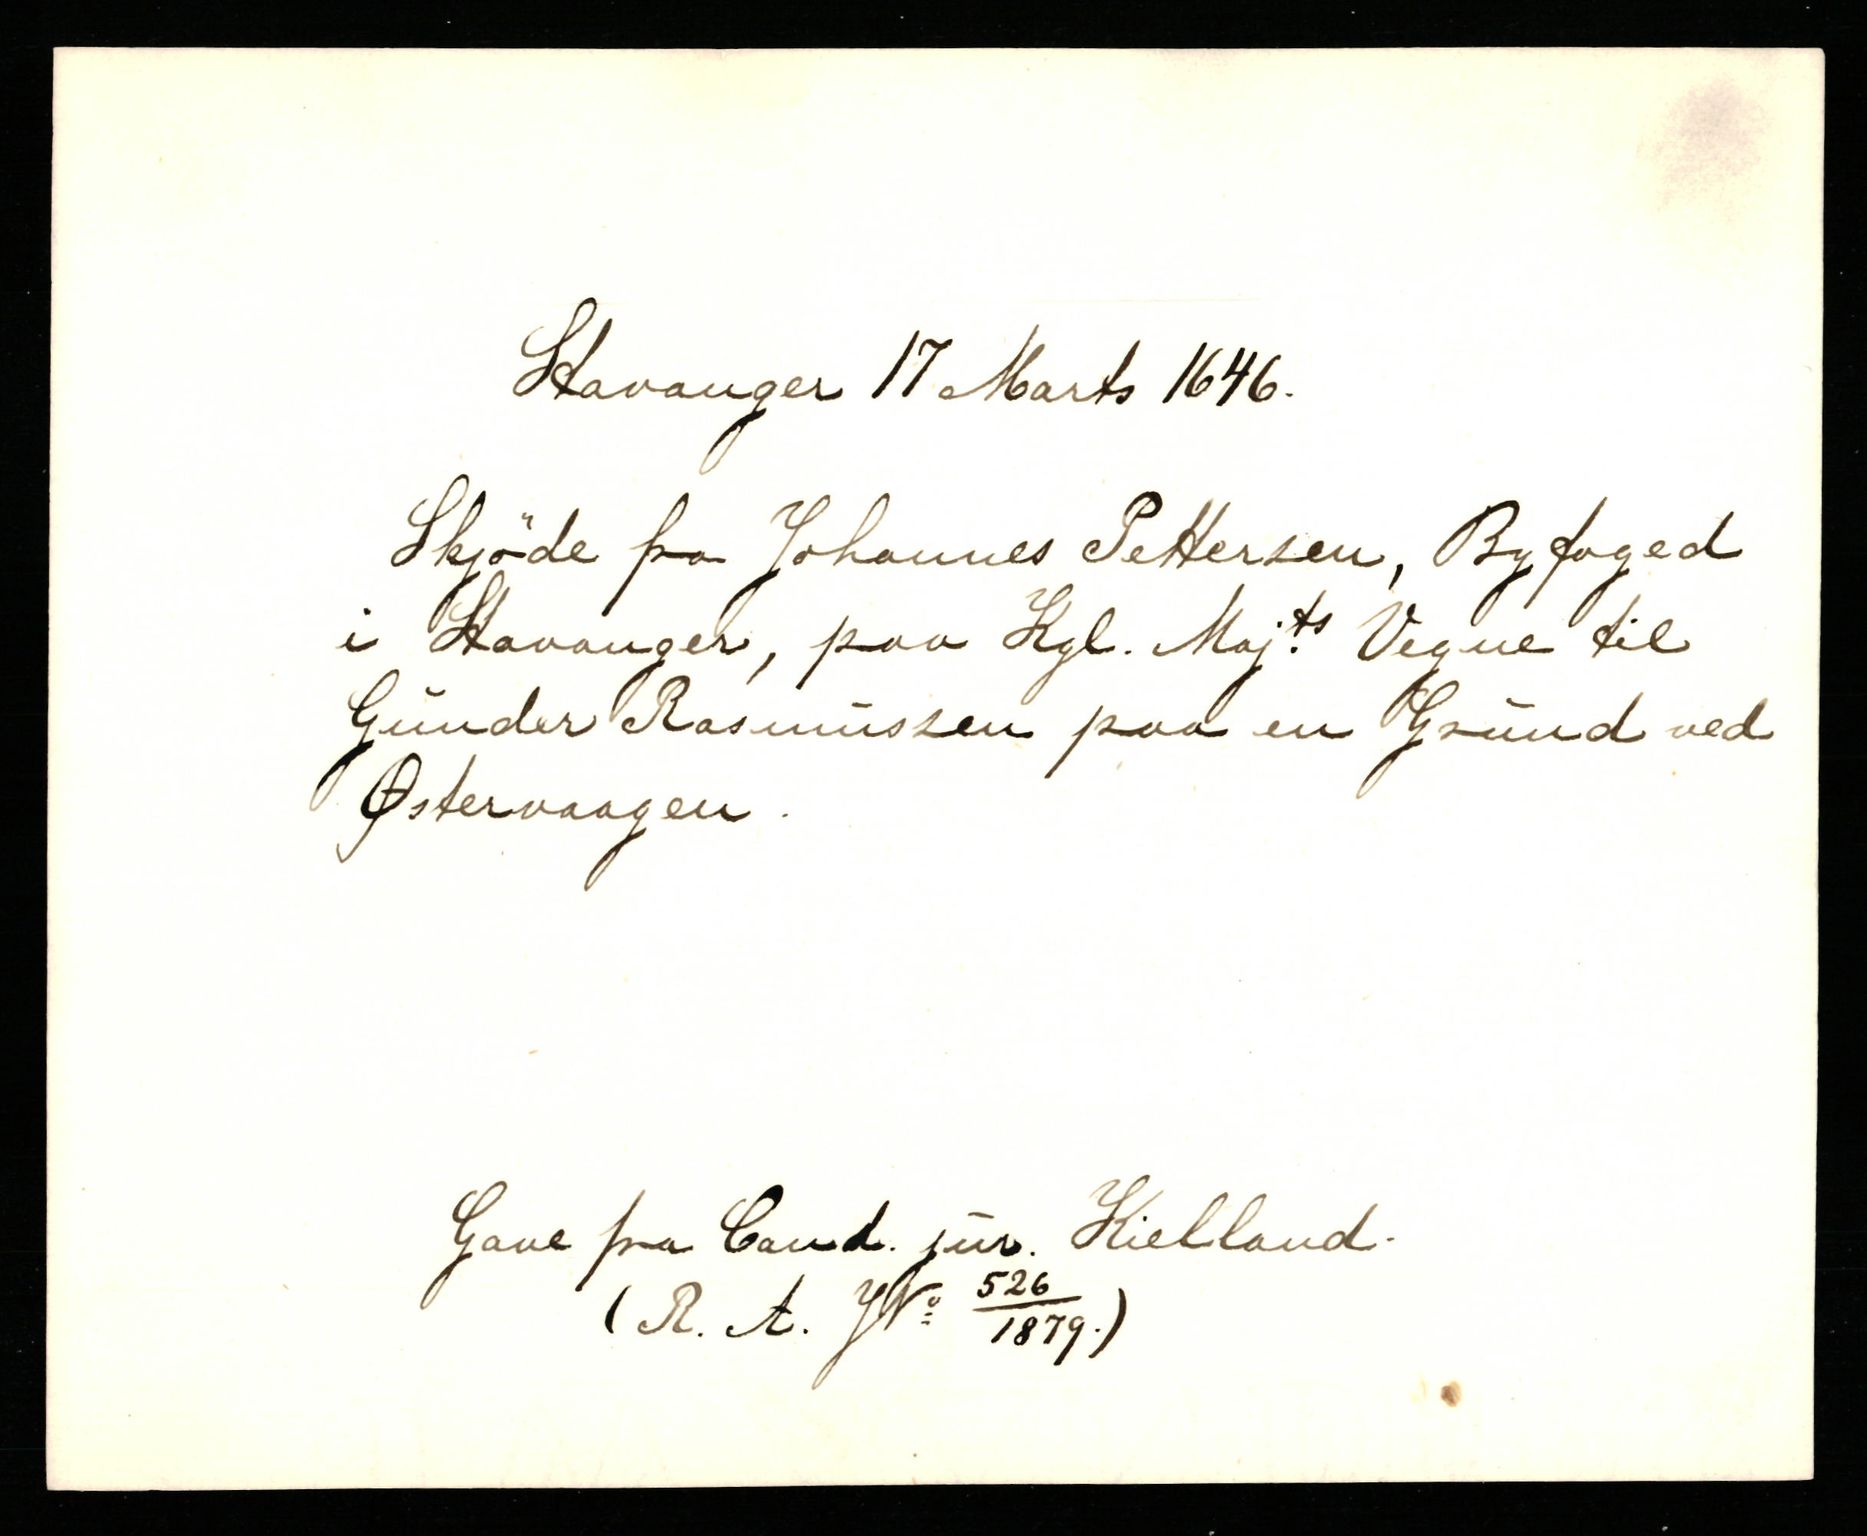 Stavanger 17 Marts 1646.
Skjöde fra Johannes Pettersen, Byfoged
i Stavanger, paa Kgl. Maj.ts Vegne til
Gunder Rasmussen paa en Grund ved
Østervaagen.
Gave fra Cand. jur. Kielland.
(R. A. JNo 526/1879.)